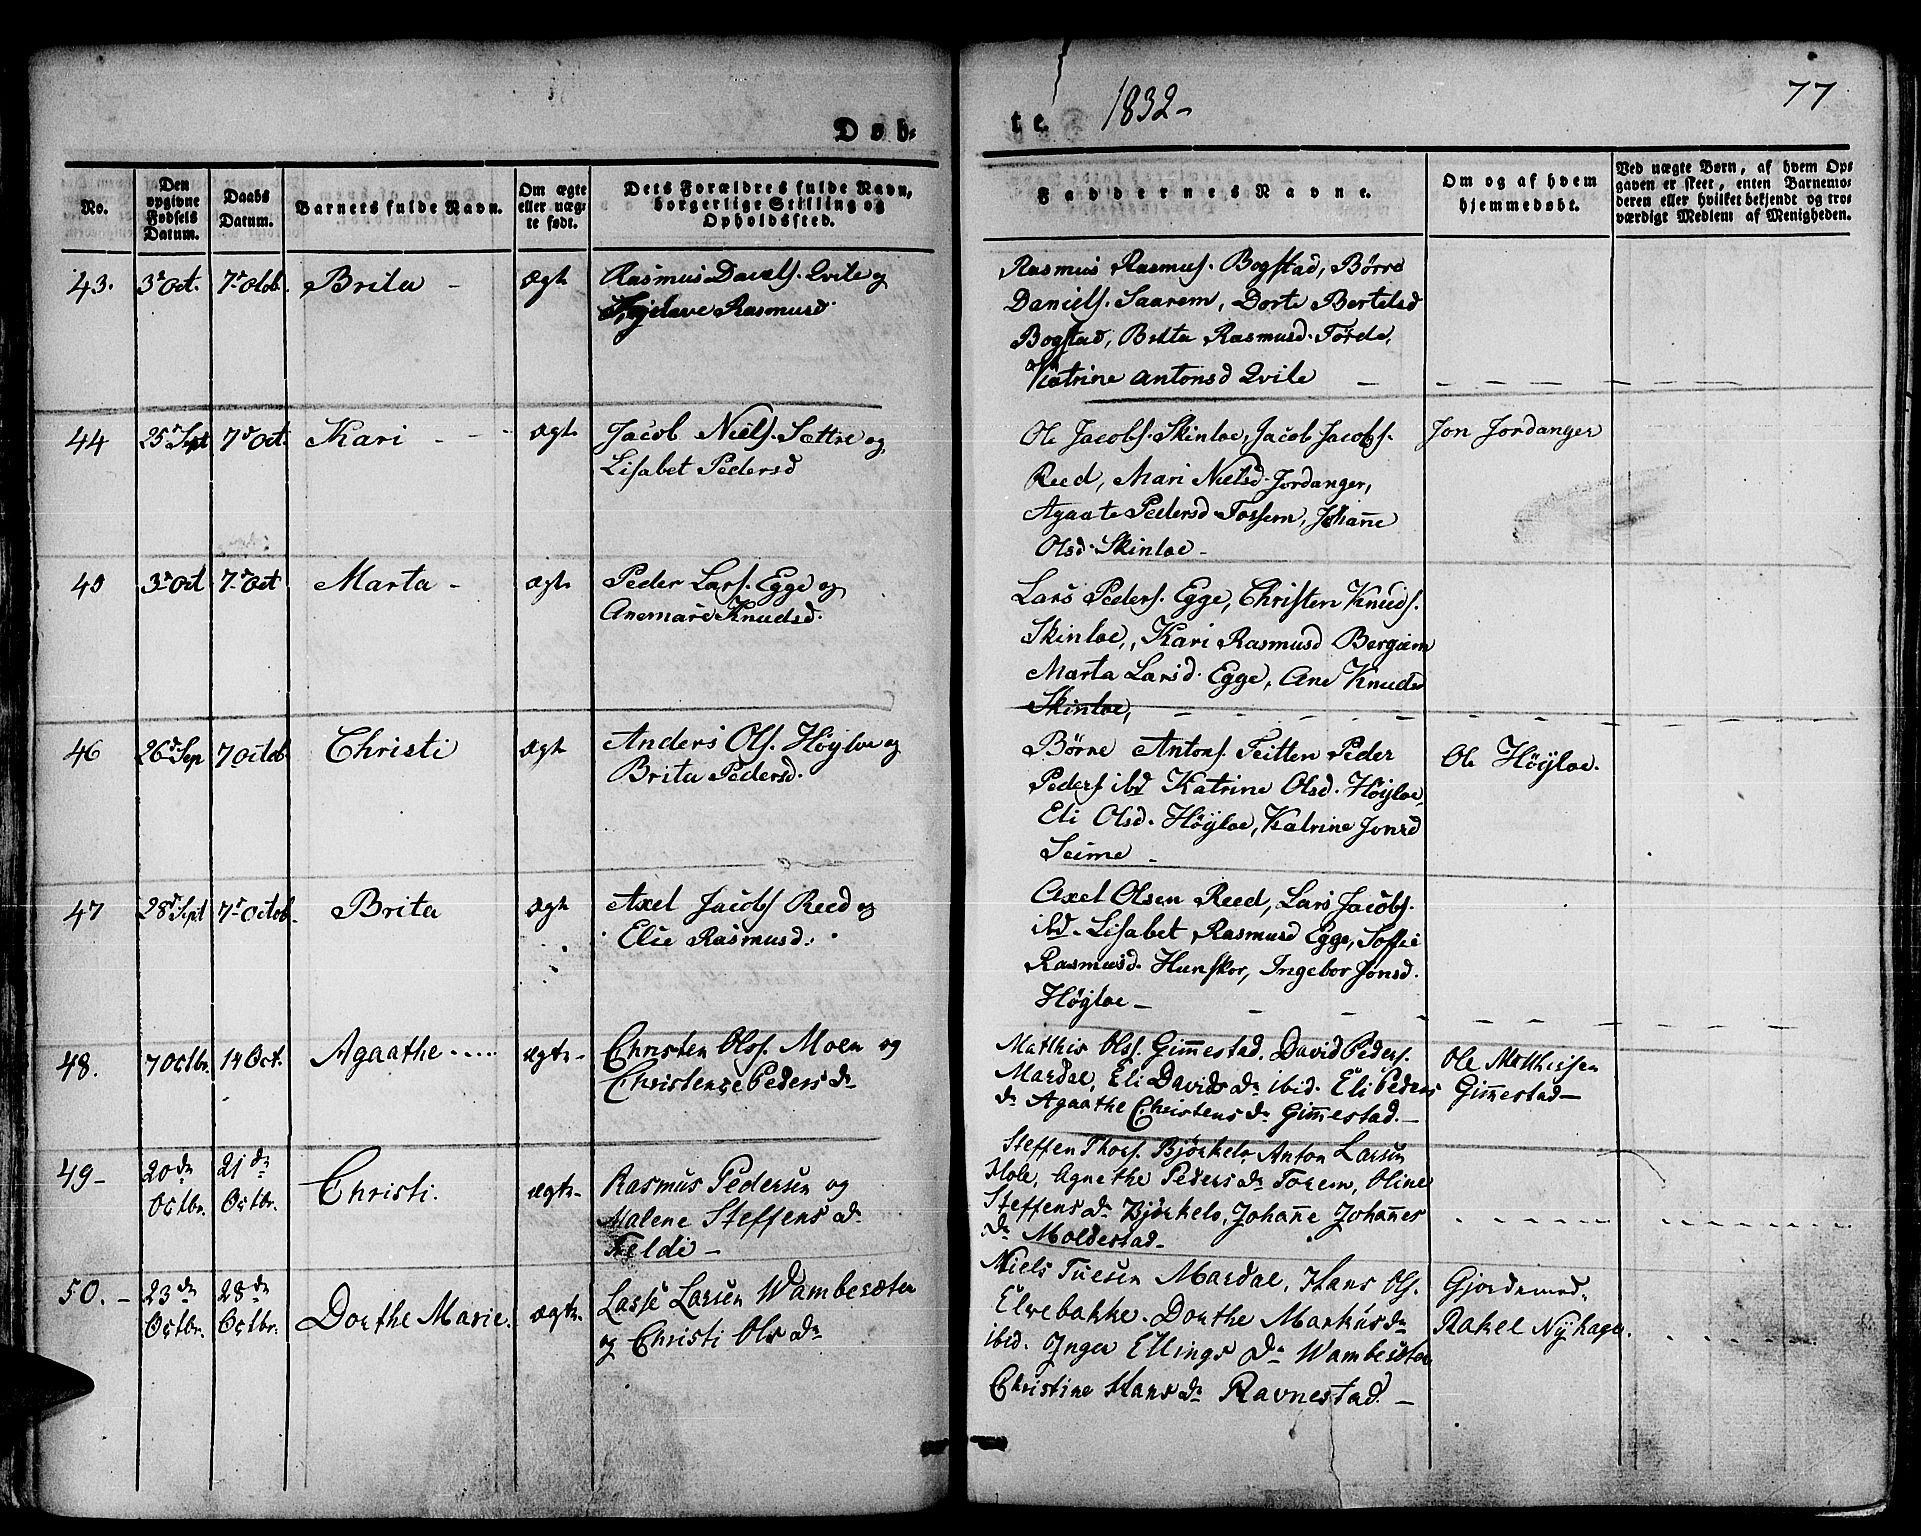 77
Døb-
te 1832-
No.
Den opgivne Fødsels Datum.
Daabs Datum.
Barnets fulde Navn.
Om ægte eller uægte født.
Dets Forældres fulde Navn, borgerlige Stilling og Opholdssted.
Faddernes Navne.
Om og af hvem hjemmedøbt.
Ved uægte Børn, af hvem Opgaven er skeet, enten Barnemoderen eller hvilket bekjendt og troværdigt Medlem af Menigheden.
43. 3d Oct. 7d Octb. Brita - Ægt
Rasmus Davels. Qvile og
Rasmusd
Rasmus Rasmus. Bogstad, Børre
Daniels. Saarem, Dorte Bertelsd
Bogstad, Brita Rasmusd. Førde,
Katrine Antonsd Qvile -
44 25d Sept 7d Oct. Kari - - - Ægt
Jacob Niels. Sættre og
Lisabet Pedersd
Ole Jacobs. Skinloe, Jacob Jacobs.
Reed, Mari Nielsd. Jordanger,
Agaate Pedersd Fossem, Johane
Olsd. Skinloe -
Jon Jordanger
45 3d Oct 7d Oct Marta - Ægt
Peder Lars. Egge og
Anemarie Knudsd.
Lars Peders. Egge, Christen Knuds.
Skinloe,, Kari Rasmusd Bergiem
Marta Larsd. Egge, Ane Knuds
Skinloe,
46 26d Sep 7 Octob Christi Ægt
Anders Ols. Høyloe og
Brita Pedersd.
Børre Antons. Teitten Peder
Peders ibd Katrine Olsd. Høyloe,
Eli Olsd. Høyloe, Katrine Jonsd
Seime -
Ole Høyloe.
47 28d Sept 7d Octob. Brita Ægt
Axel Jacobs Reed og
Elie Rasmusd.
Axel Olsen Reed, Lars Jacobs.
ibd. Lisabet Rasmusd Egge, Soffie
Rasmusd. Hunskor, Ingebor Jonsd.
Høyloe -
48. 7 Octbr. 14 Oct. Agaathe..... ægte-
Christen Ols. Moen og
Christence Peders Dr
Matthis Ols. Gimestad. David Peders.
Mardal, Eli Davids Dr ibid. Eli Peders
Dr Agaathe Christens Dr Gimestad. -
Ole Matthissen
Gimestad -
49 - 20de Octbr. 21de Octbr. Christi. ægte-
Rasmus Pedersen og
Malene Steffens Dr
Feldi -
Steffen Thors. Bjørkelo Anton Larsen
Hole, Agnethe Peders Dr Forem, Oline
Steffens Dr Bjørkelo, Johane Johanes
Dr Moldestad -
50. - 23de Octbr. 28de Octbr. Dorthe Marie. ægte.
Lasse Larsen Wambesæter
og Christi Ols Dr
Niels Tuesen Mardal, Hans Ols.
Elvebakke. Dorthe Markus Dr
ibid. Inger Ellings Dr Wambesæter
Christine Hans Dr Ravnestad. -
Gjordemod.
Rakel Nyhage.